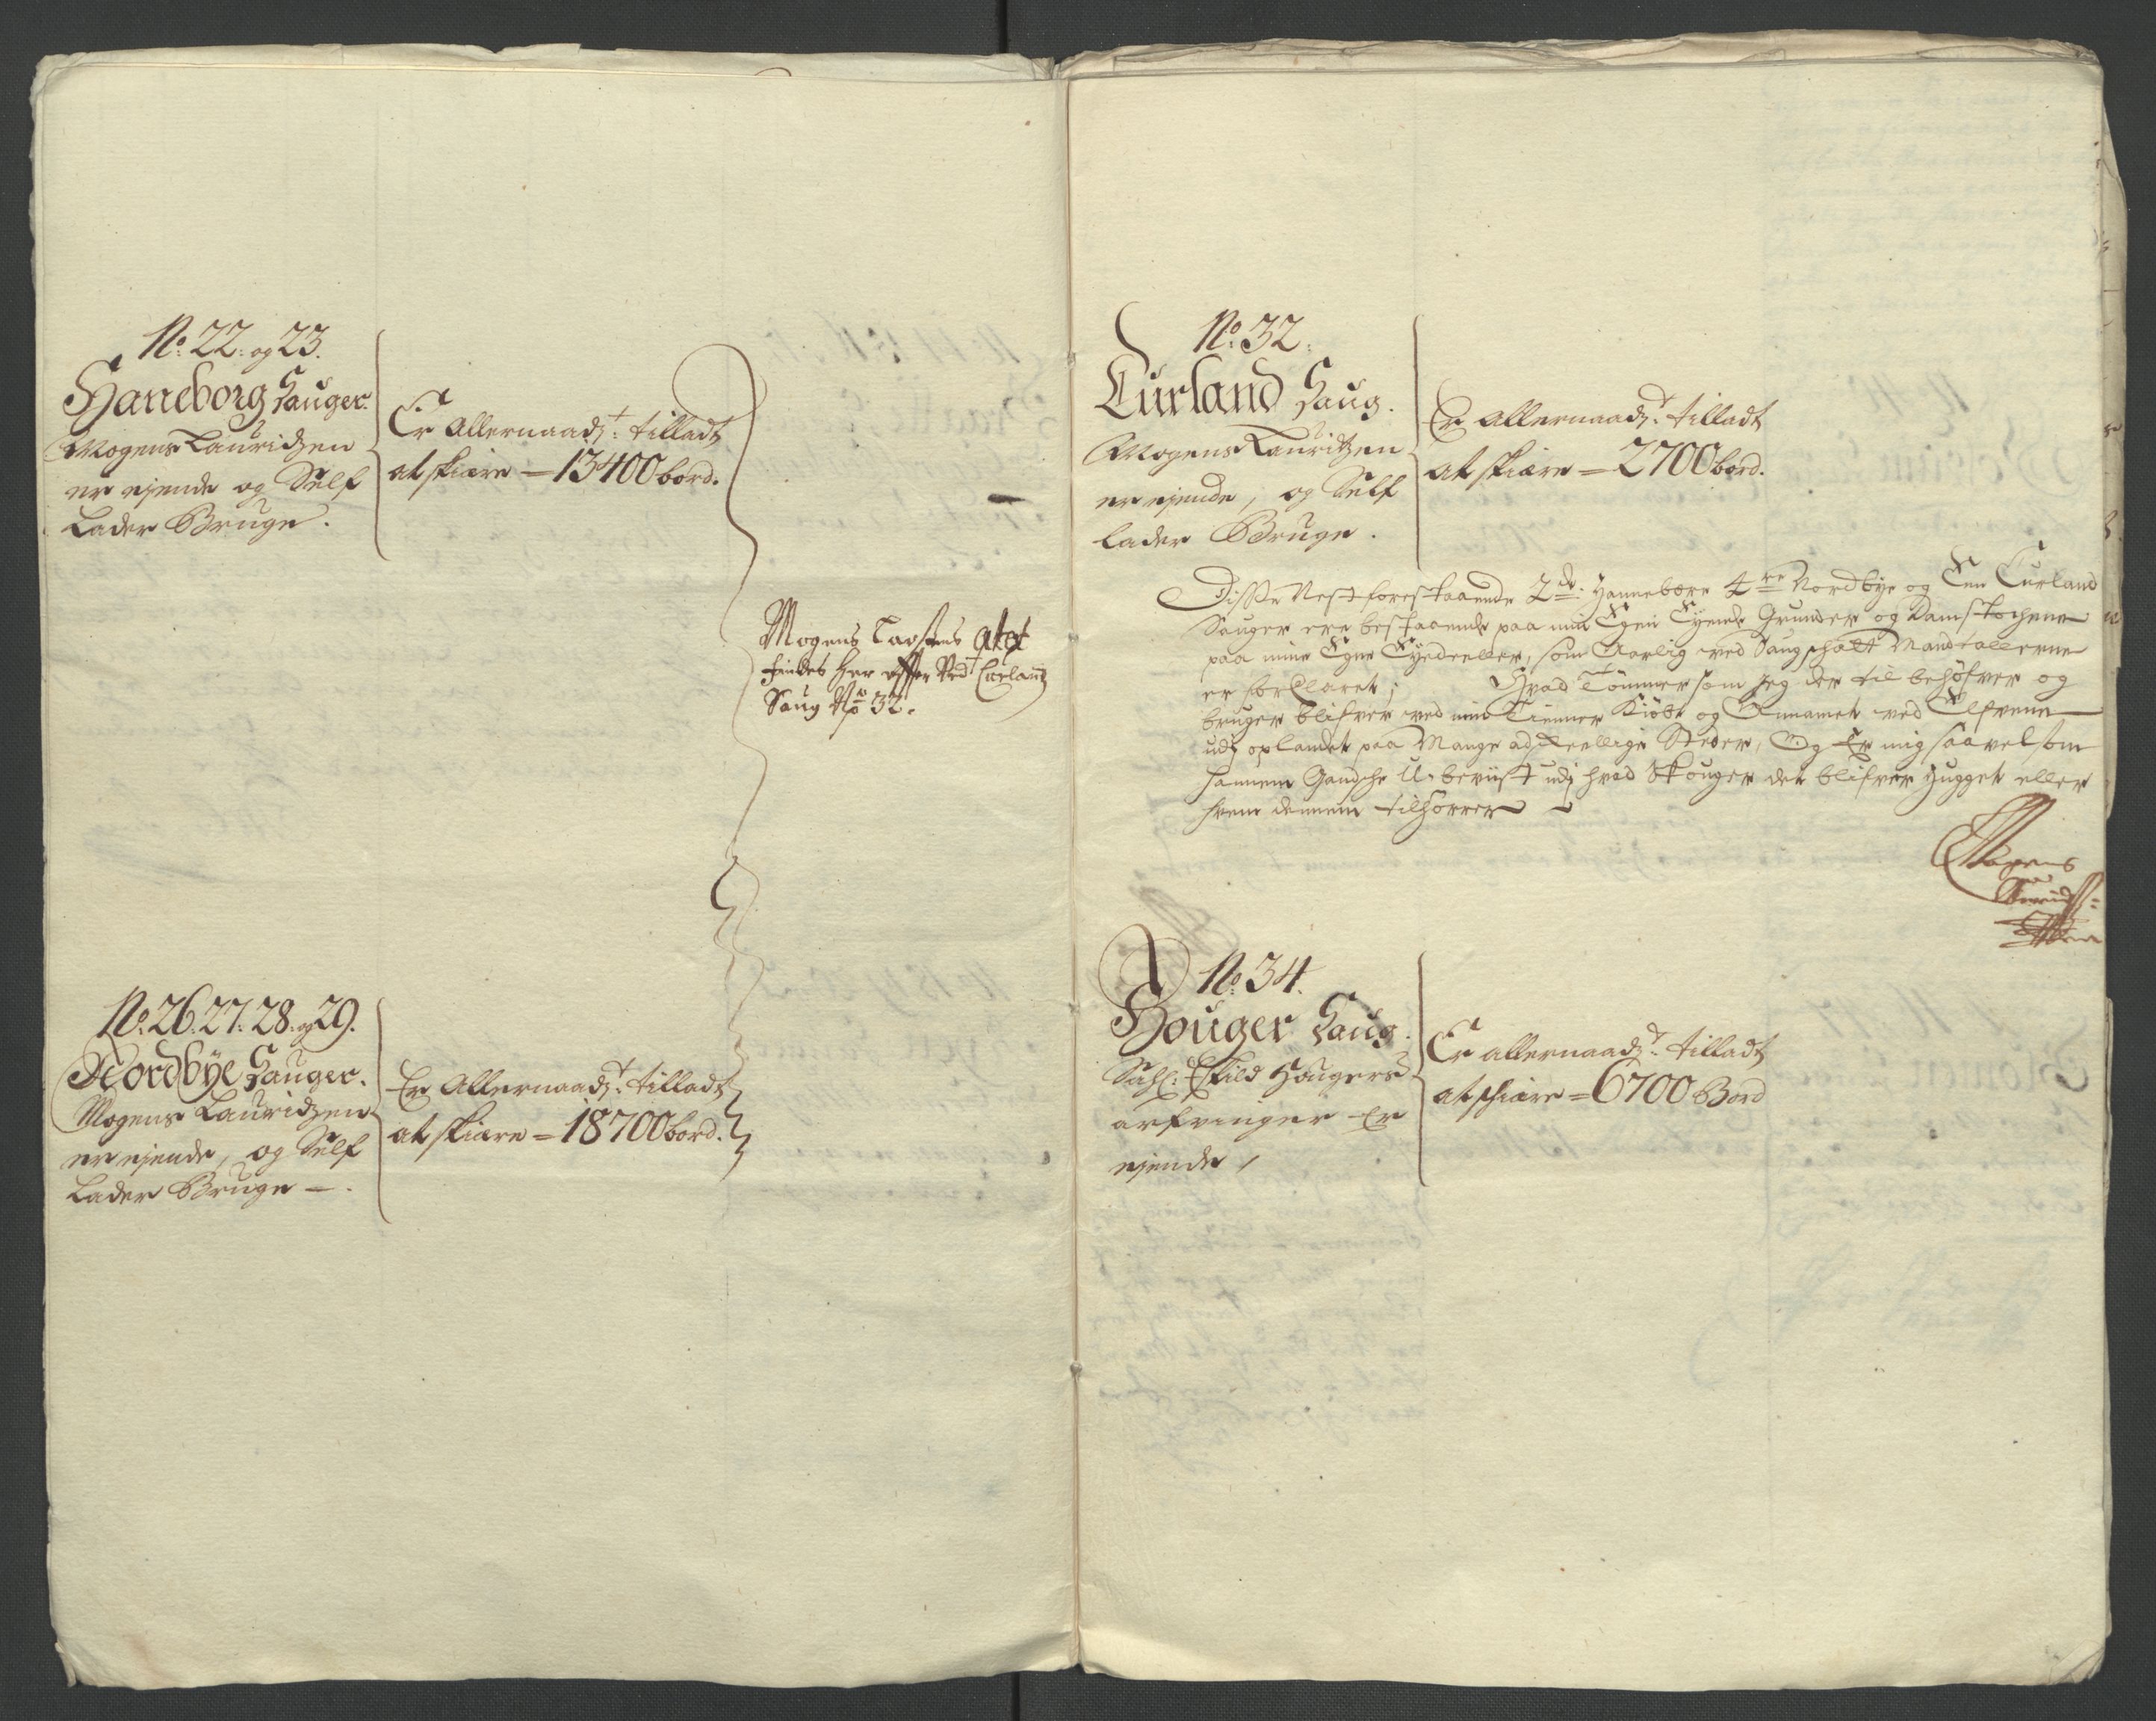 No: 22. og 23.
Haneborg Sauger.
Mogens Lauridzen
er ejende og Self
Lader Bruge.
Er Allernaadt: tilladt
at skiære = 13400 bord.
Mogens
findes her effter Ved Curland
Saug No 32.
No: 26. 27. 28. og 29.
Nordbÿe Sauger.
Mogens Lauridzen
er ejende, og Self
Lader Bruge —.
Er Allernaadt: tilladt
at skiære = 18700 bord.
No: 32.
Curland Saug.
Mogens Lauritzen
er ejende, og Self
lader Bruge.
Er Allernaadt: tilladt
at skiære = 2700 bord.
Disse Nest forestaaende 2de: Hannebore 4re Nordbÿe og Een Curland
Sauger ere bestaaende paa min Egen Eyende Grunder og Damstochene
paa mine Egne Eyedeeller, som Aarlig ved Saugschatt Mandtallerne
er forClaret; Hvad Tømmer som jeg der til behøfver og
bruger blifver ved min Tienner Kiøbt og Annamet ved Elfvene
udj oplandet paa Mange adskeellige Steder, Og Er mig saavelsom
hannem Gandsche U-beviist udj hvad Skouger det blifver Hugget eller
hvem dennem tilhørrer
Mogens
No: 34.
Houger Saug.
Sahl: Eskild Hougers
arfvinger Er
ejende,
Er allernaadt: tilladt
at schiære = 6700 Bord